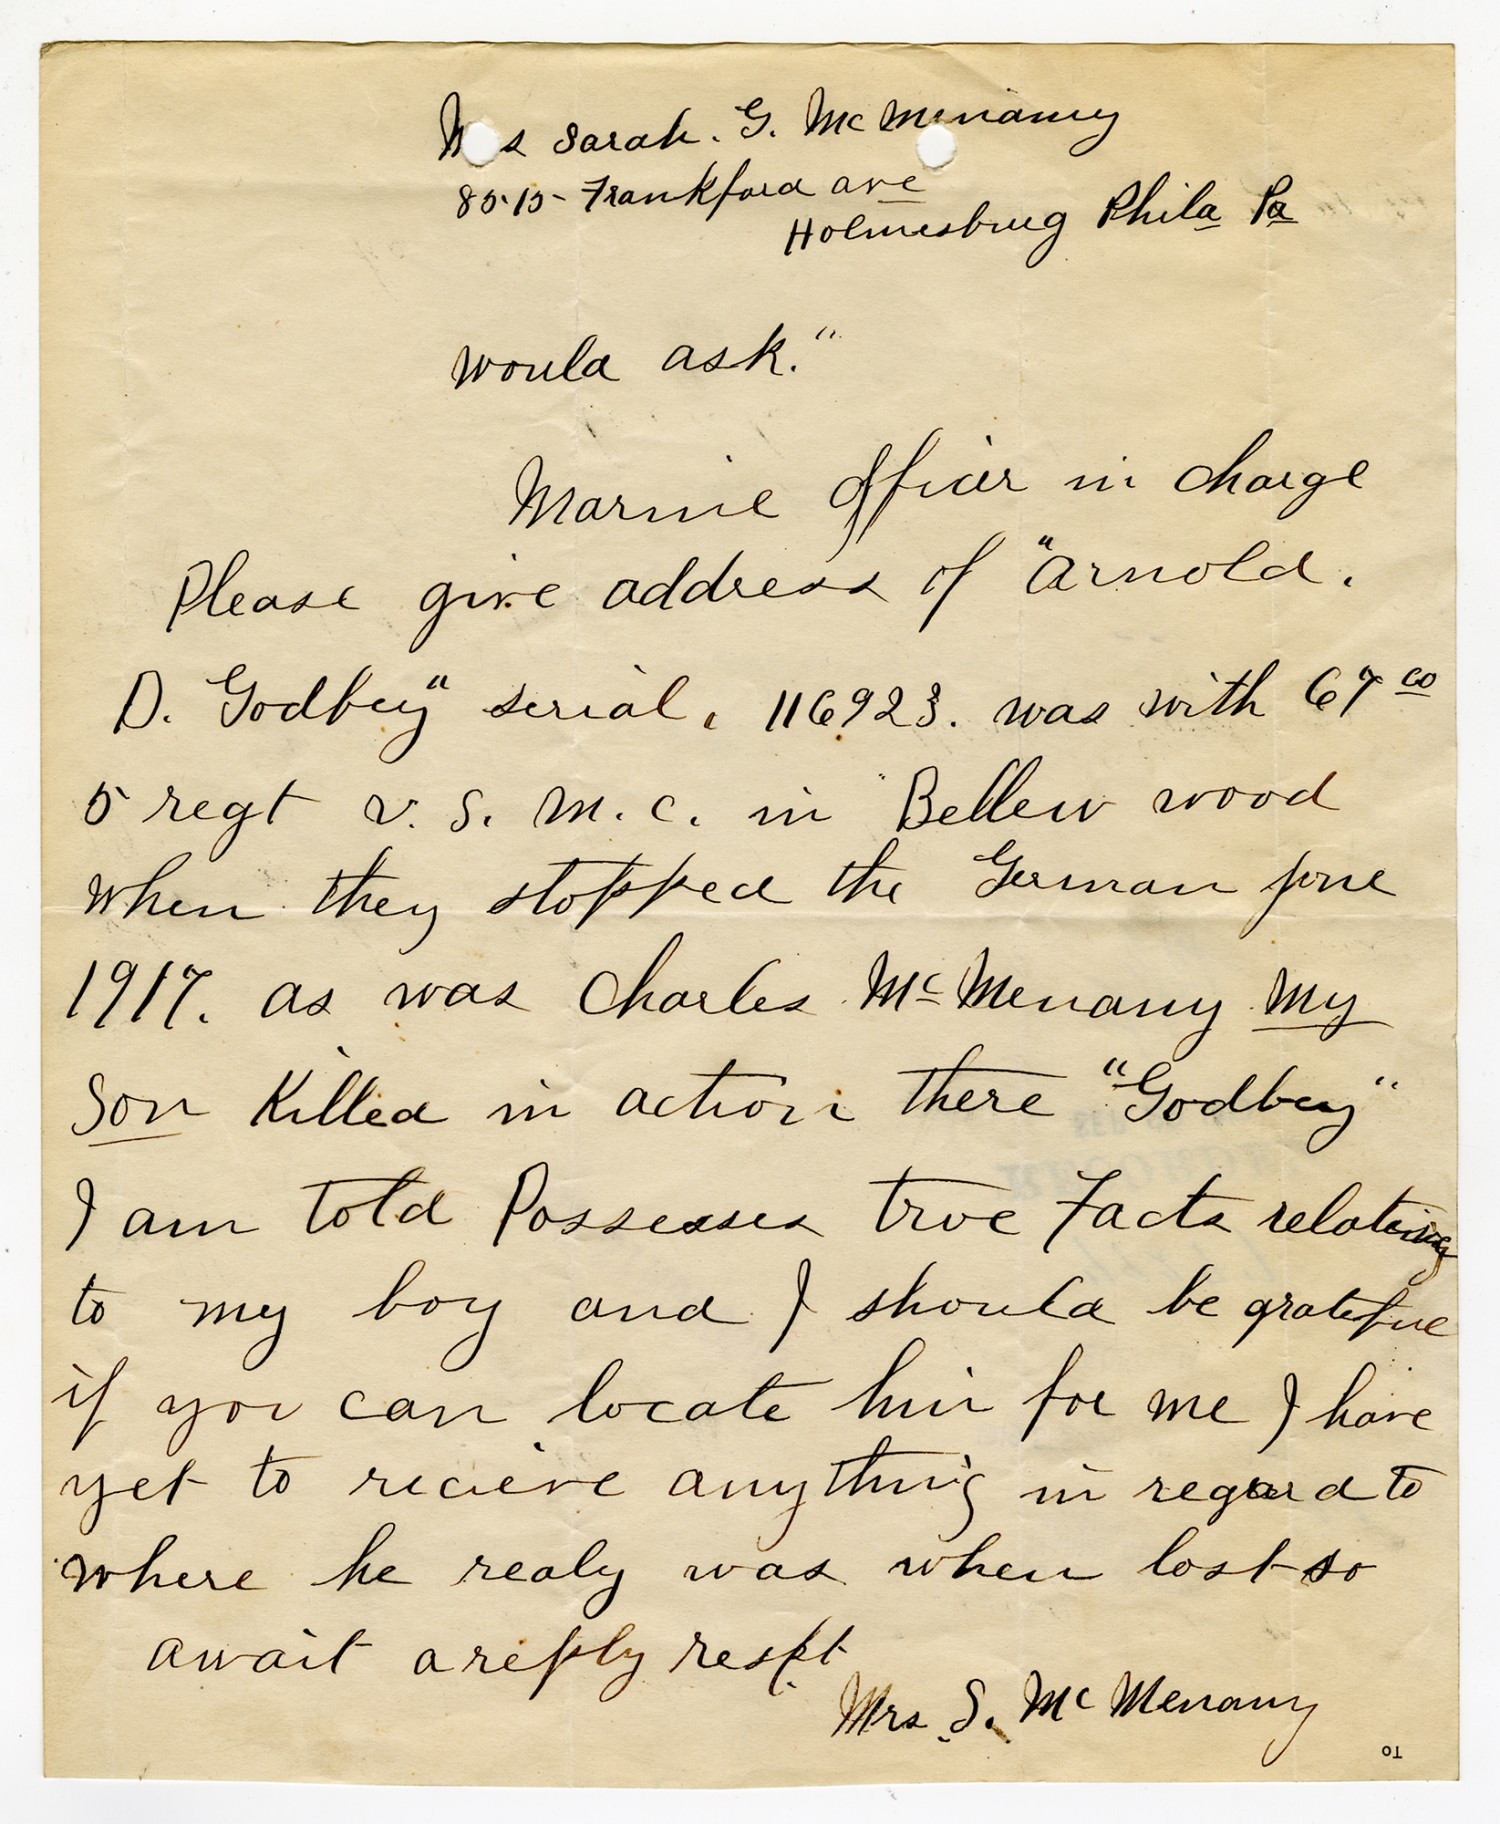 Mrs Sarah. G. McMenamy
8515 Frankford ave
Holmesbrug Phila Pa
would ask."
Marine Officer in charge
Please give address of "Arnold.
D. Godbey" serial. 116923. was with 67 co
5 regt U. S. M. C. in "Bellew wood
when they stopped the German June
1917. as was Charles McMenamy my
son Killed in action there "Godbey"
I am told Possesses true Facts relating
to my boy and I should be grateful
if you can locate him for me I have
yet to recieve anything in regard to
where he realy was when lost so
await a reply respt
Mrs. S. McMenamy